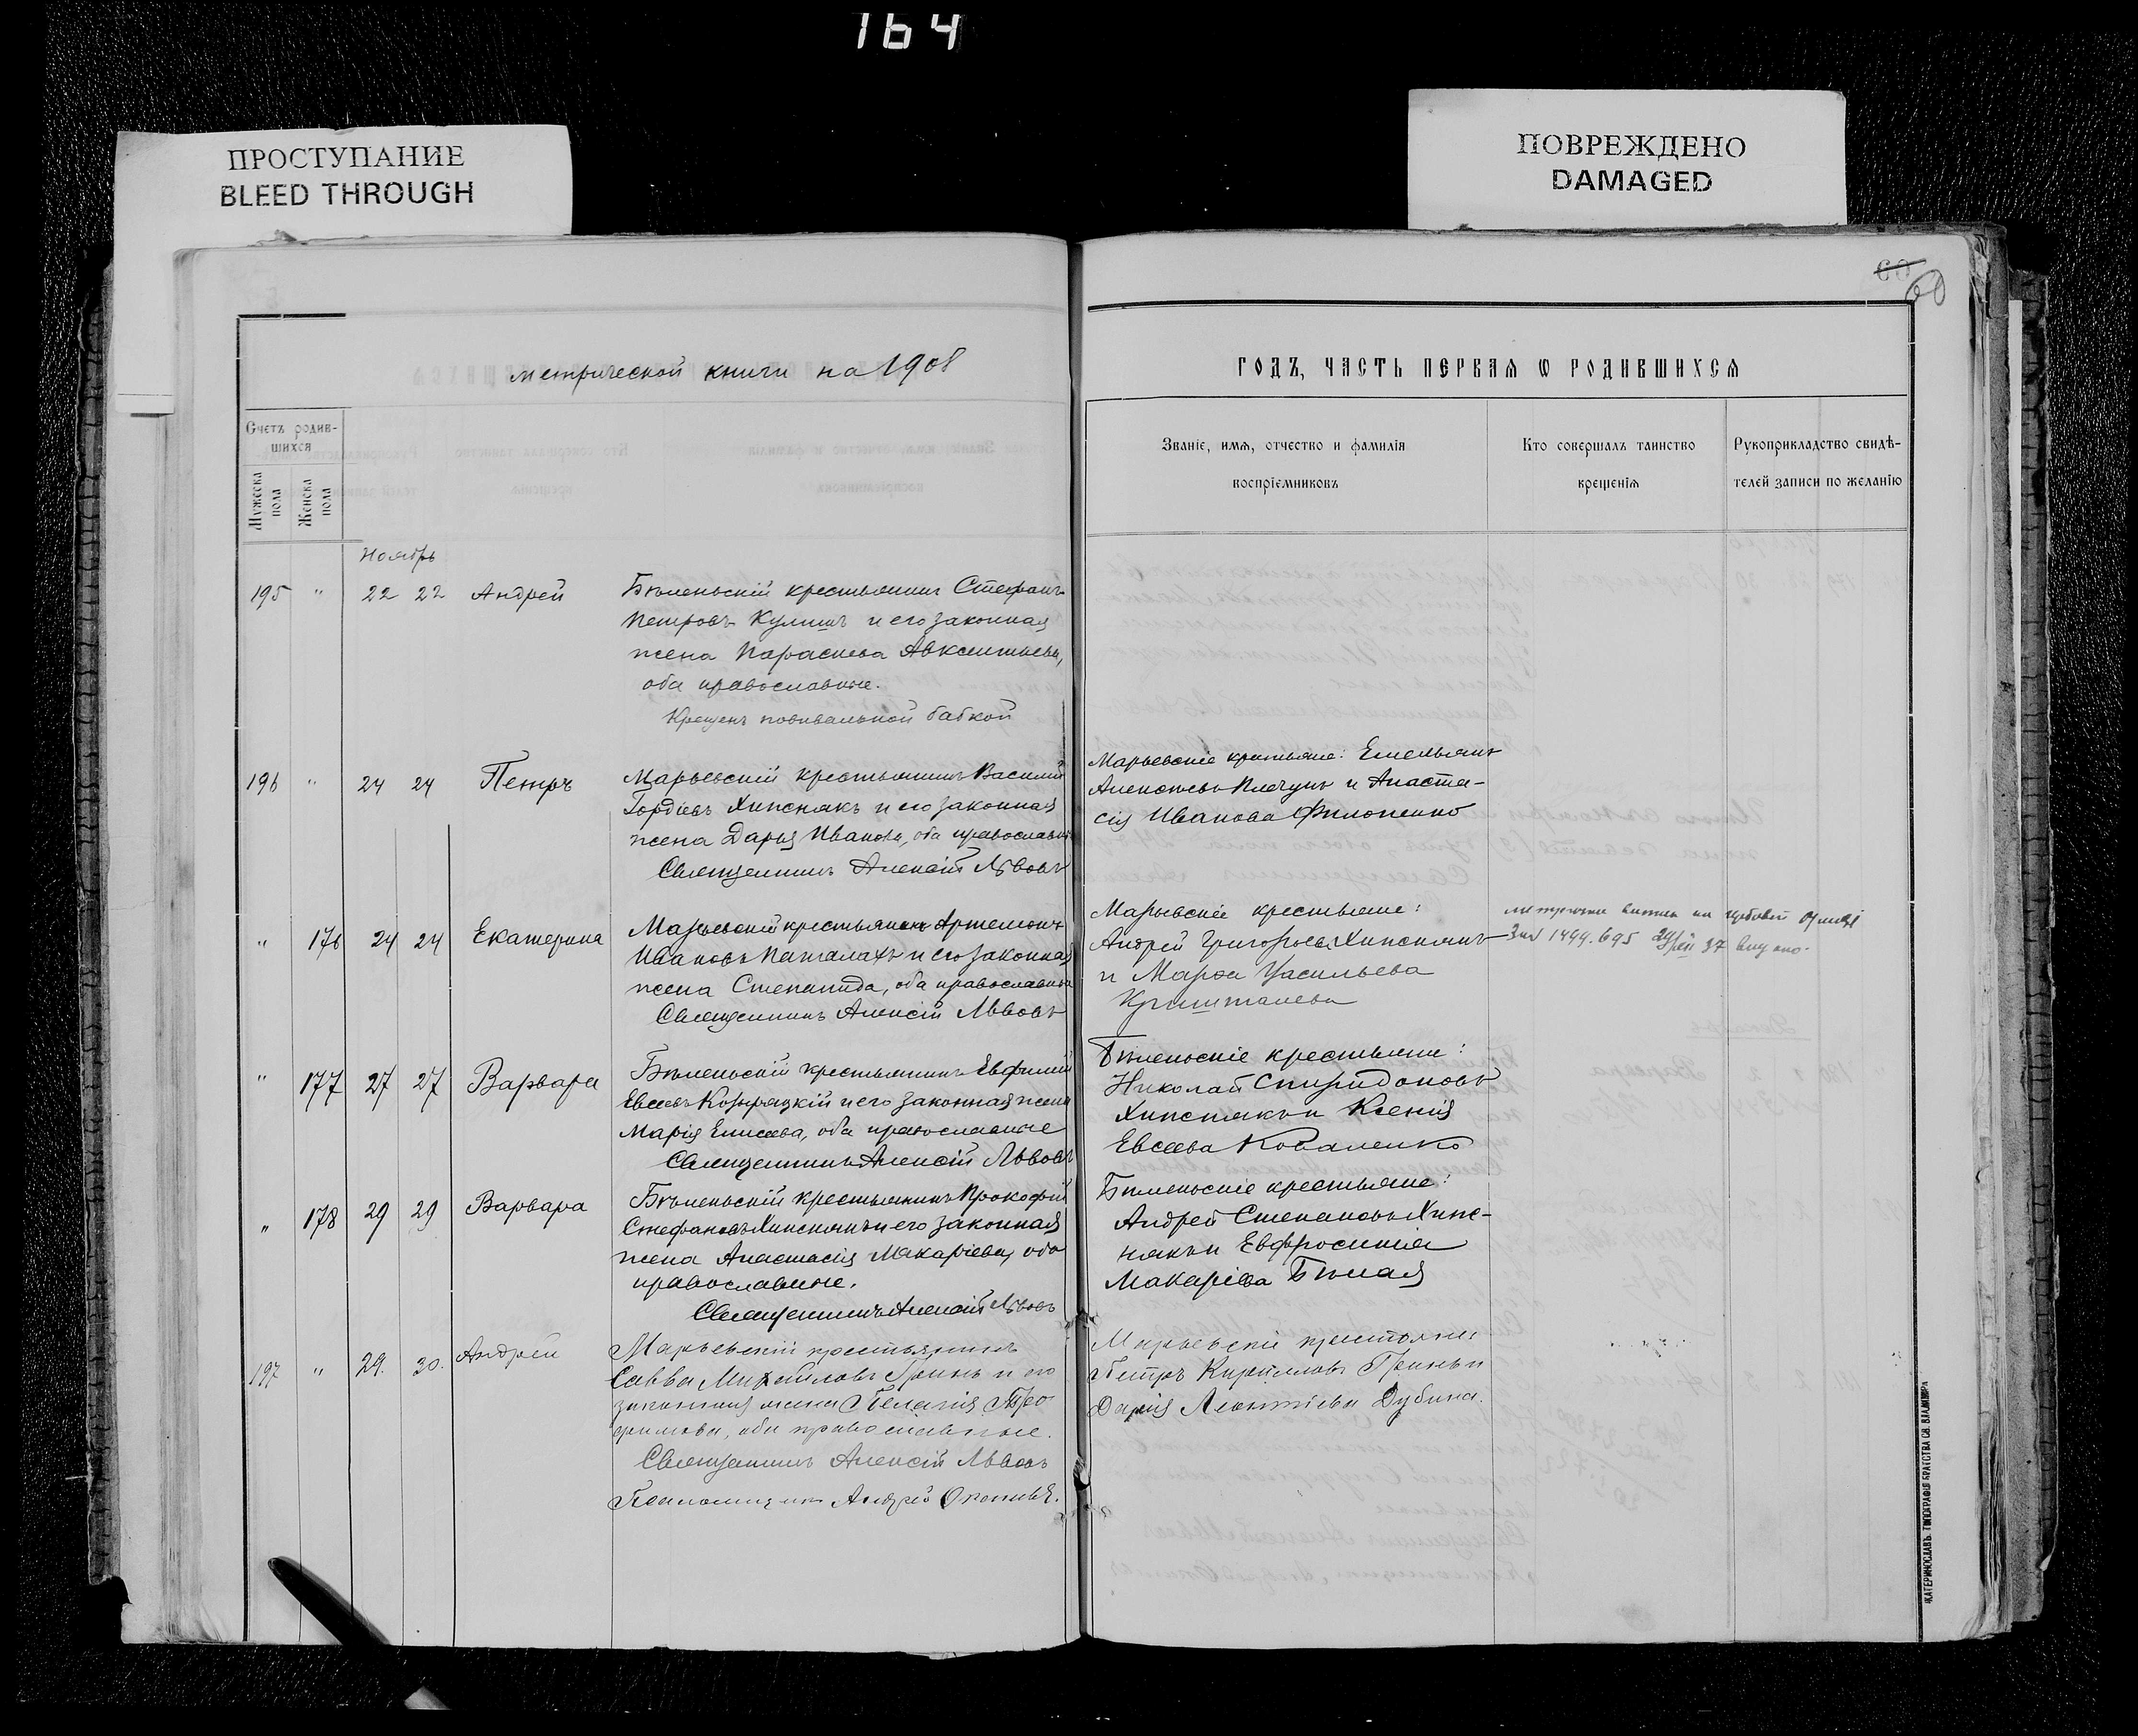 164
ПРОСТУПАНИЕ
BLEED THROUGH
ПОВРЕЖДЕНО
DAMAGED
60
60
метрической книги на 1908
Счетъ родив-
шихся
Мужеска пола
Женска пола
Ноябрь
195 " 22 22 Андрей
Бѣленьскій крестьянинъ Стефанъ
Петровъ Кулишъ и его законная
жена Параскева Авксентьева,
оба православные.
Крещенъ повивальной бабкой
196 " 24 24 Петръ
Марьевскій крестьянинъ Василій
Гордіевъ Хипснякъ и его законная
жена Дарья Иванова, оба православные
Священникъ Алексій Львовъ
" 176 24 24 Екатерина
Марьевскій крестьянинъ Артемонъ
Ивановъ и его законная
жена Степанида, оба православные
Священникъ Алексій Львовъ
" 177 27 27 Варвара
Бѣленьскій крестьянинъ Евфимій
Евсеевъ Козыряцкій и его законная жена
Марія Елисеева, оба православные
Священникъ Алексій Львовъ
" 178 29 29 Варвара
Бѣленьскій крестьянинъ Прокофій
Стефановъ Хипснякъ и его законная
жена Анастасія Макаріева, оба
православные.
Священникъ Алексій Львовъ
197 " 29. 30. Андрей
Марьевскій крестьянинъ
Савва Михайловъ Гринь и его
законная жена Пелагія Тро-
фимова, оба православные.
Священникъ Алексій Львовъ
Псаломщикъ Андрей
ГОДЪ, ЧАСТЬ ПЕРВАѦ Ѡ РОДИВШИХСѦ
Званіе, имѧ, отчество и фамиліѧ
воспріемниковъ
Кто совершалъ таинство
крещеніѧ
Рукоприкладство свидѣ-
телей записи по желанію
Марьевскіе крестьяне: Емельянъ
Алексѣевъ Плачунъ и Анаста-
сія Иванова Филоненко
Марьевскіе крестьяне:
Андрей Григорьевъ Хипснякъ
и Марфа Васильева
Кришталева
1499.695 37
Бѣленьскіе крестьяне:
Николай Спиридоновъ
Хипснякъ и Ксенія
Евсеева Коваленко
Бѣленьскіе крестьяне:
Андрей Степановъ Хипс-
някъ и Евфросинія
Макаріева Бѣлая
Марьевскіе крестьяне:
Петръ Кирилловъ Гринь и
Дарія Леонтіева Дубина.
ЕКАТЕРИНОСЛАВЪ. ТИПОГРАФІЯ БРАТСТВА СВ. ВЛАДИМІРА